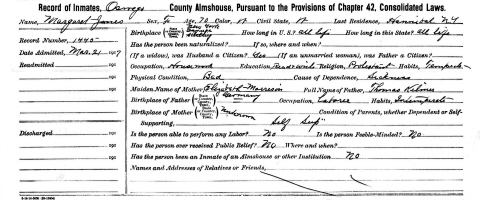 Record of Inmates, Oswego County Almshouse, Pursuant to the Provisions of Chapter 42, Consolidated Laws.
Name, Margaret Jones Sex, F Age, 70 Color, W Civil State, W Last Residence, Hannibal NY
Record Number, 1440 Birthplace How long in U.S.? all life How long in this State? All life
Date Admitted, Mar. 21 1917 Has the person been naturalized? If so, where and when?
Readmitted 191 (If a widow), was Husband a Citizen? Yes (If an unmarried woman), was Father a Citizen?
191 Occupation, Housework Education, Read & write Religion, Protestant Habits, Temperate
191 Physical Condition, Bad Cause of Dependence, Sickness
191 Maiden Name of Mother Elizabeth Morrison Full Name of Father, Thomas
191 Birthplace of Father Germany Occupation, Laborer Habits, Intemperate
191 Birthplace of Mother Unknown Condition of Parents, whether Dependent or Self-
191 Supporting, Self Sup
Discharged 191 Is the person able to perform any Labor? No Is the person Feeble-Minded? No
191 Has the person ever received Public Relief? No Where and when?
191 Has the person been an Inmate of an Almshouse or other Institution No
191 Names and Addresses of Relatives or Friends,